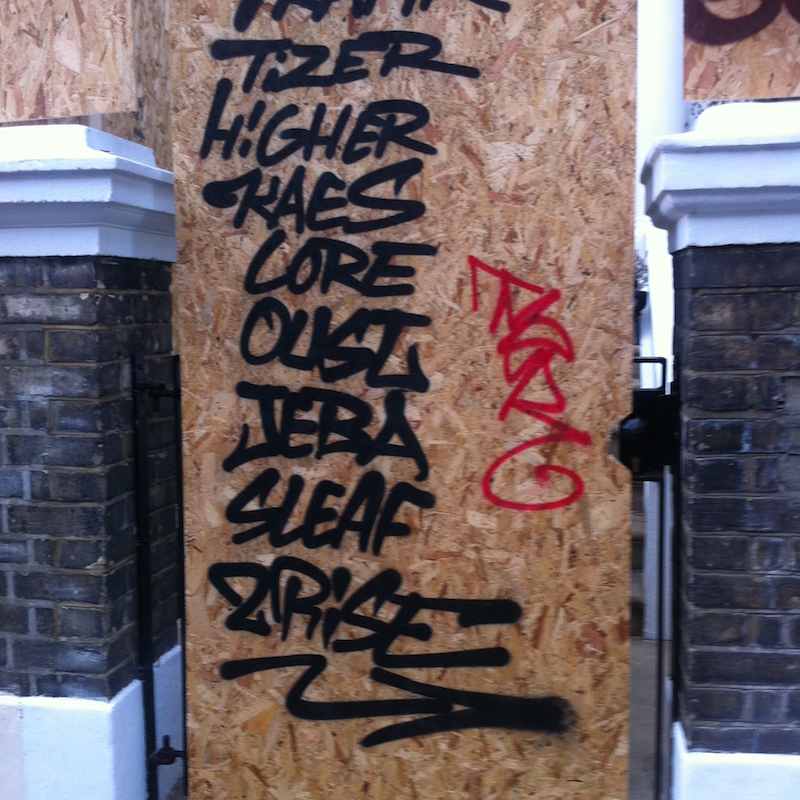 TIZER
H!GHER
KAES
CORE
OUST
JEBA
SLEAF
2RiSE